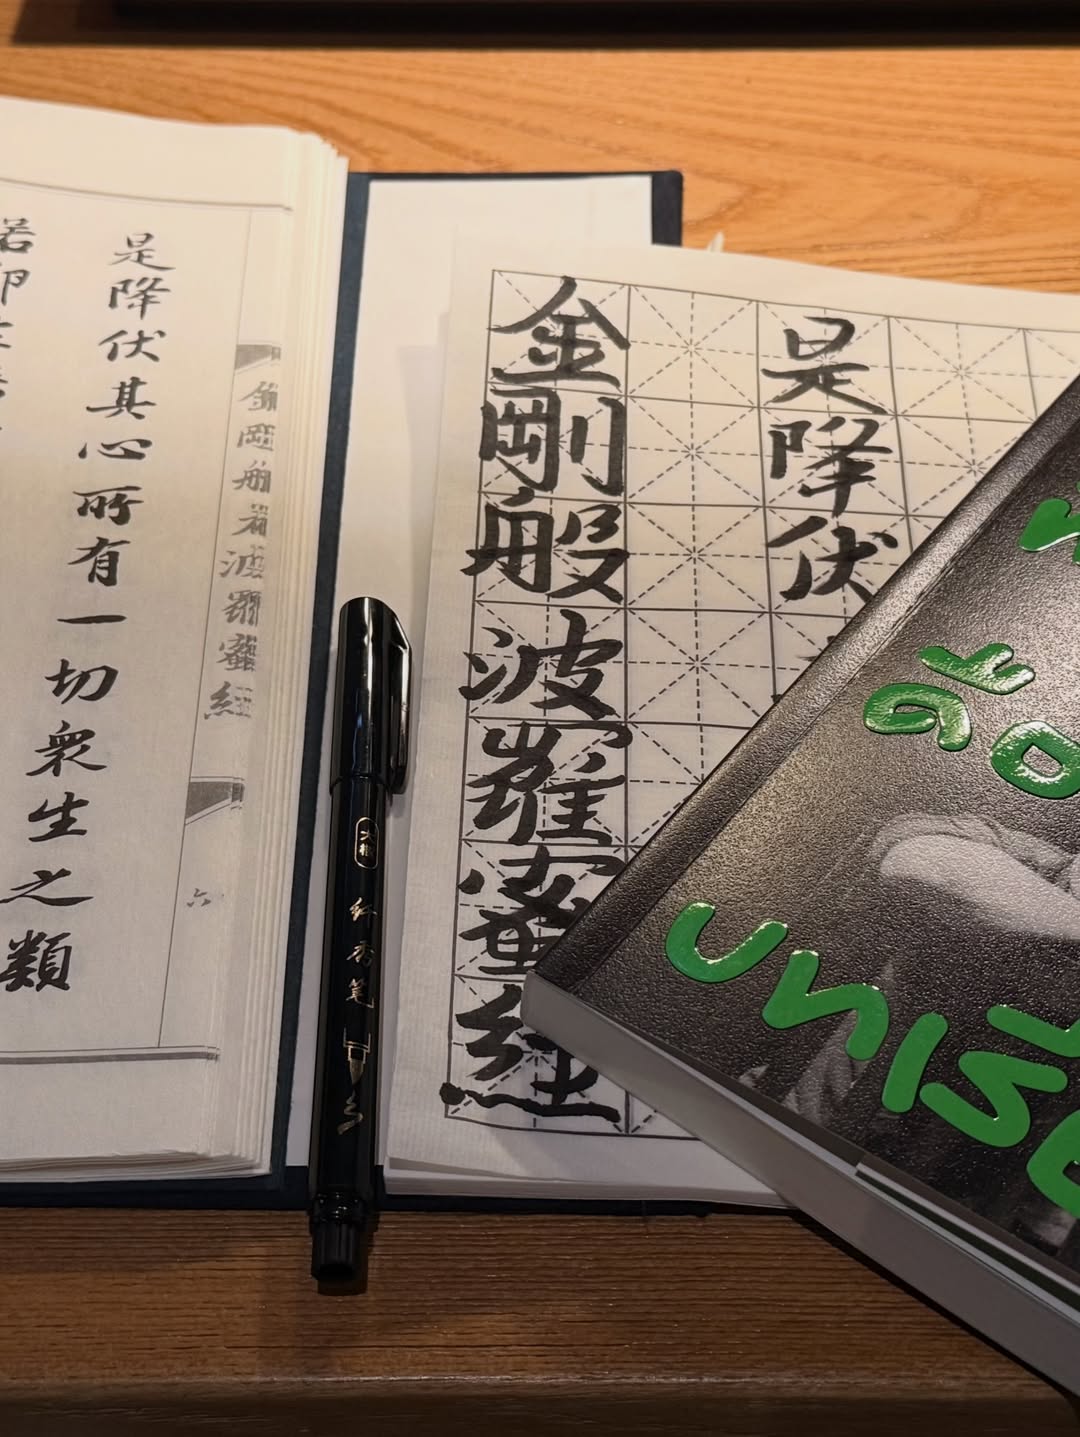 是降伏其心所有一切衆生之類
若卵
金剛般若波羅蜜經
六
大楷
秀丽笔
金剛般波羅蜜經
是降伏
GO
UNISE